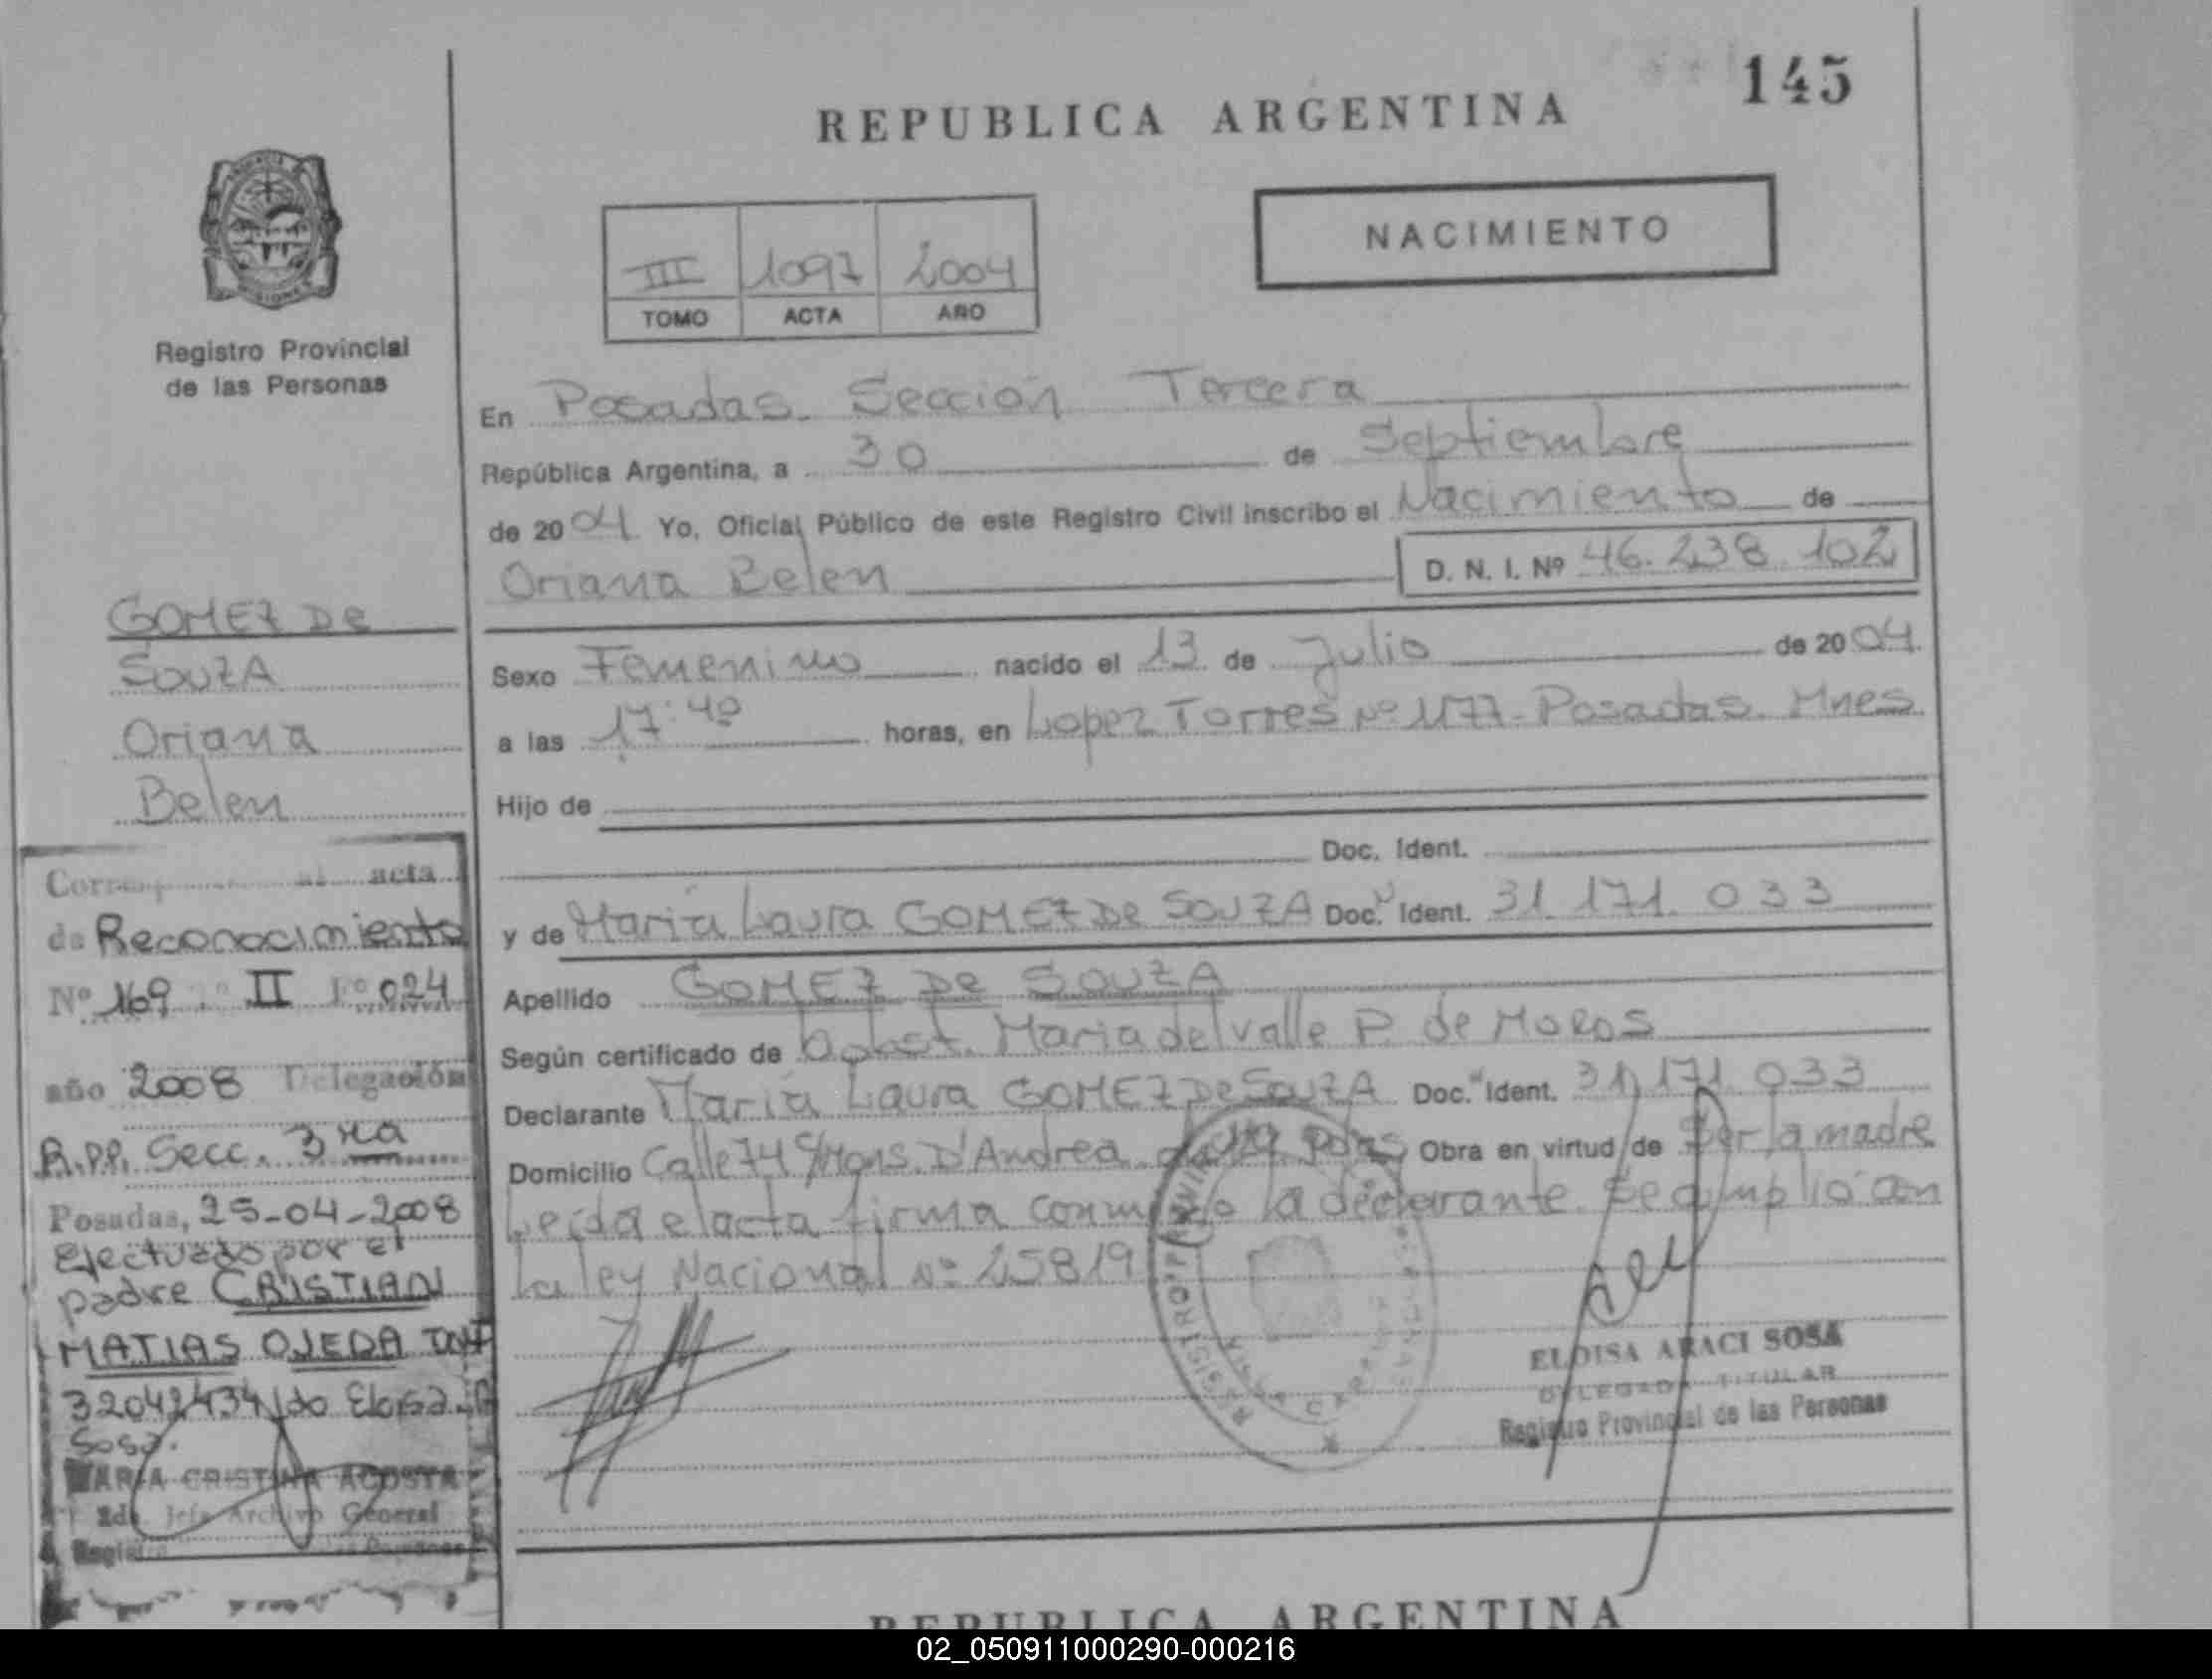 145
REPUBLICA ARGENTINA
NACIMIENTO
III 1097 2004
TOMO ACTA AÑO
Registro Provincial
de las Personas
En Posadas. Sección Tercera
República Argentina, a 30 de Septiembre
de 2004 Yo, Oficial Público de este Registro Civil inscribo el Nacimiento de
Oriana Belen D. N. I. Nº 46.238.102
Sexo Femenino nacido el 13 de Julio de 2004
a las 17:40 horas, en Lopez Torres Nº 1177 - Posadas. Mnes
Hijo de
Doc. Ident.
y de Maria Laura GOMEZ De SOUZA Doc. Ident. 31.171.033
Apellido GOMEZ De SOUZA
Según certificado de Obst. Maria del Valle P. de Moros
Declarante Maria Laura GOMEZ De SOUZA Doc. Ident. 31.171.033
Domicilio Calle 74 S/Mons. D'Andrea Pdas Obra en virtud de Ser la madre
Leida el acta firma conmigo la declarante. Se cumplió con
la ley Nacional Nº 25819
ELOISA ARACI SOSA
DELEGADA TITULAR
Registro Provincial de las Personas
GOMEZ De
SOUZA
Oriana
Belen
acta
de Reconocimiento
Nº 169 Tº II Fº 024
año 2008 Delegación
R.P.P. Secc. 3ra
Posadas, 25-04-2008
Efectuado por el
padre CRISTIAN
MATIAS OJEDA DNI
Eloisa A
Sosa.
MARIA CRISTINA ACOSTA
2da. Jefa Archivo General
REPUBLICA ARGENTINA
02_050911000290-000216